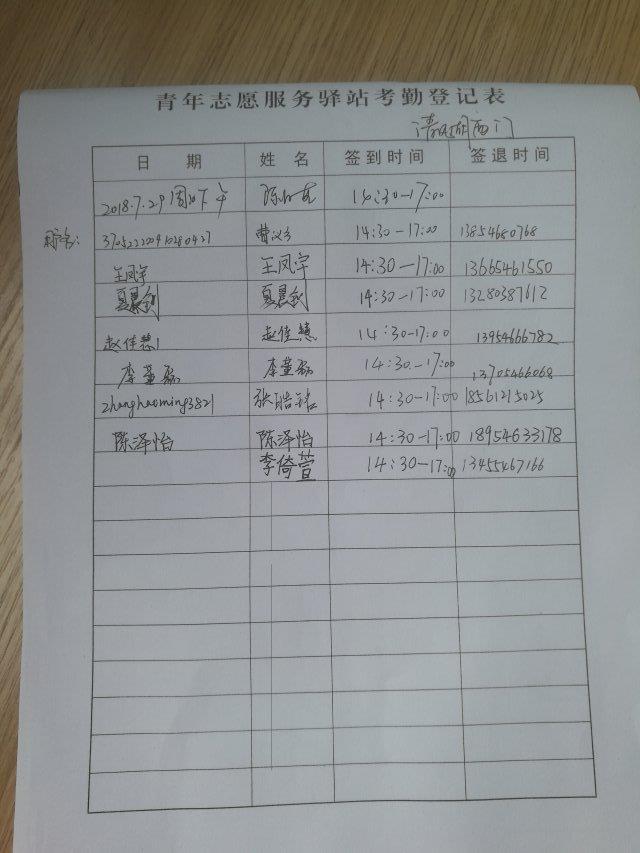 青年志愿服务驿站考勤登记表
清风湖西门
日 期 姓 名 签到时间 签退时间
2018.7.29 周日下午 14:30-17:00
用户名: 370522200410280427 14:30-17:00 13854680768
王凤宇 王凤宇 14:30-17:00 13665461550
夏晨剑 夏晨剑 14:30-17:00 13280387612
赵佳慧1 赵佳慧 14:30-17:00 13954666782
李董磊 李董磊 14:30-17:00 13705466068
zhanghaoming3821 张皓铭 14:30-17:00 18561215025
陈泽怡 陈泽怡 14:30-17:00 18954633178
李倚萱 14:30-17:00 13455467166